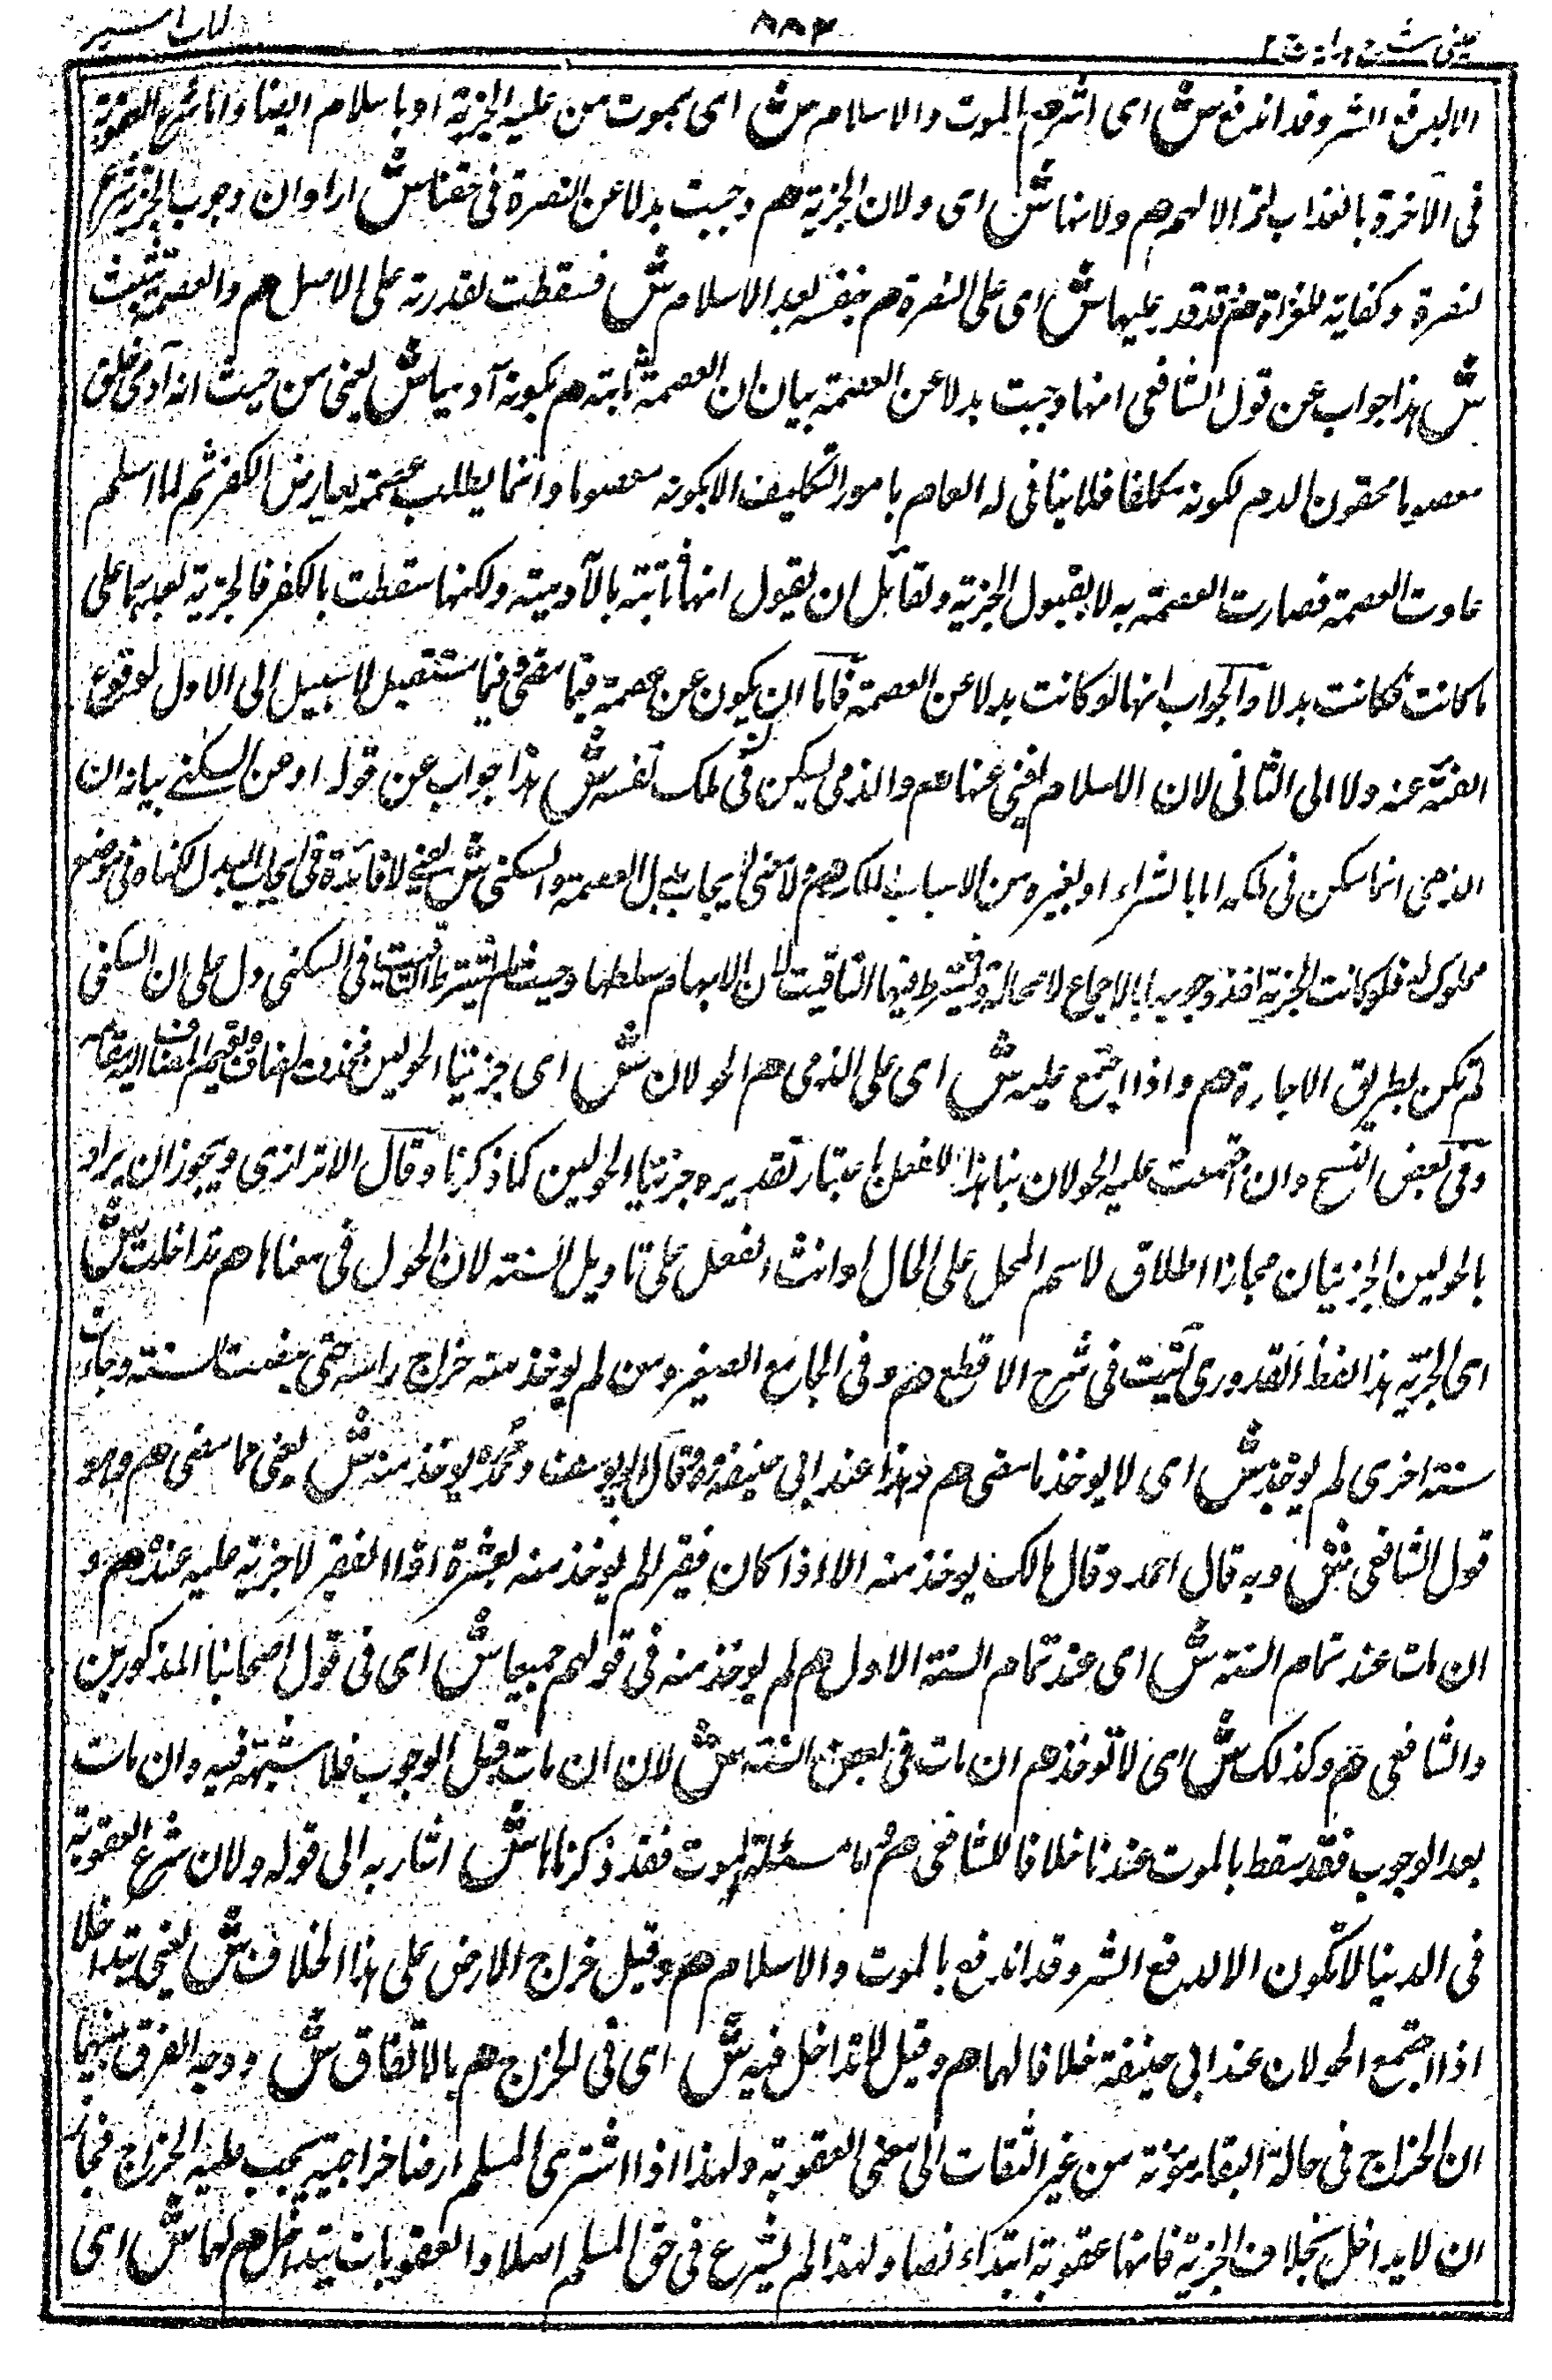 عینی شرح ہدایہ ج ۲ ۸۸۴ کتاب السیر
الا لدفع الشر وقد اندفع ش ای الشر هم بالموت والاسلام ش ای بموت من علیه الجزیة او باسلام ایضا وانما شرع العقوبة
فی الآخرة بالعذاب هم ولانها ش ای ولان الجزیة هم وجبت بدلا عن النصرة فی حقنا ش اراد ان وجوب الجزیة
لنصرة وکفایة للغزاة هم وقد قدر علیها ش ای علی النصرة هم بنفسه بعد الاسلام ش فسقطت لقدرته علی الاصل هم والعصمة تثبت
ش هذا جواب عن قول الشافعی انها وجبت بدلا عن العصمة بیان ان العصمة ثابتة هم بکونه آدمیا ش یعنی من حیث انه آدمی خلق
معصوما محقون الدم لکونه مکلفا فلا یتأتی له القیام بامور التکلیف الا بکونه معصوما وانما بطلت عصمته بعارض الکفر ثم لما اسلم
عادت العصمة فصارت العصمة به لا بقبول الجزیة ولقائل ان یقول انها ثابتة بالآدمیة ولکنها سقطت بالکفر فالجزیة تعیدها علی
ما کانت فکانت بدلا والجواب انها لو کانت بدلا عن العصمة فاما ان یکون عن عصمة فیما مضی او فیما یستقبل لا سبیل الی الاول لوقوع
الغنیة عنه ولا الی الثانی لان الاسلام یغنی عنها هم والذمی یسکن فی ملک نفسه ش هذا جواب عن قوله او عن السکنی بیانه ان
الذمی انما یسکن فی ملکه اما بالشراء او بغیره من الاسباب للملک هم فلا معنی لایجاب بدل العصمة والسکنی ش یعنی لا فائدة فی ایجاب البدل لسکناه فی موضع
مملوک له فلو کانت الجزیة اجرة وجوبها بالاجماع لا محالة ویشترط فیها التاقیت لان الابهام یبطلها وحیث لم یشترط التاقیت فی السکنی دل علی ان السکنی
لم تکن بطریق الاجارة هم واذا اجتمع علیه ش ای علی الذمی هم الحولان ش ای جزیتا الحولین فحذف المضاف واقیم المضاف الیه مقامه
وفی بعض النسخ وان اجتمعت علیه الحولان بتاء الفعل باعتبار تقدیره جزیتا الحولین کما ذکرنا وقال الاترازی ویجوز ان یراد
بالحولین الجزیتان مجازا اطلاقا لاسم المحل علی الحال او انث الفعل علی تاویل السنة لان الحول فی معناها هم تداخلت ش
ای الجزیة هذا لفظ القدوری ثبت فی شرح الاقطع هم وفی الجامع الصغیر ومن لم یوخذ منه خراج راسه حتی مضت السنة وجاءت
سنة اخری لم یوخذ ش ای لا یوخذ ما مضی هم وهذا عند ابی حنیفة وقال ابو یوسف ومحمد یوخذ منه ش یعنی مما مضی هم وهو
قول الشافعی ش وبه قال احمد وقال مالک یوخذ منه الا اذا کان فقیرا لم یوخذ منه لعشرة اذ الفقیر لا جزیة علیه عنده هم و
ان مات عند تمام السنة ش ای عند تمام السنة الاول هم لم یوخذ منه فی قولهم جمیعا ش ای فی قول اصحابنا المذکورین
والشافعی هم وکذلک ش ای لا توخذ هم ان مات فی بعض السنة ش لان ان مات قبل الوجوب فلا شبهة فیه وان مات
بعد الوجوب فقد سقط بالموت عندنا خلافا للشافعی هم اما مسئلة الموت فقد ذکرناها ش اشار به الی قوله ولان شرع العقوبة
فی الدنیا لا تکون الا لدفع الشر وقد اندفع بالموت والاسلام هم وقیل خراج الارض علی هذا الخلاف ش یعنی یتداخلا
اذا اجتمع الحولان عند ابی حنیفة خلافا لهما هم وقیل لا تداخل فیه ش ای فی الخراج هم بالاتفاق ش ووجه الفرق بینهما
ان الخراج فی حالة البقاء مؤنة من غیر التفات الی معنی العقوبة ولهذا اذا اشتری المسلم ارضا خراجیة یجب علیه الخراج فجاز
ان لا یداخل بخلاف الجزیة فانها عقوبة ابتداء نصا ولهذا لم یشرع فی حق المسلم اصلا والعقوبات یتداخل هم لهما ش ای